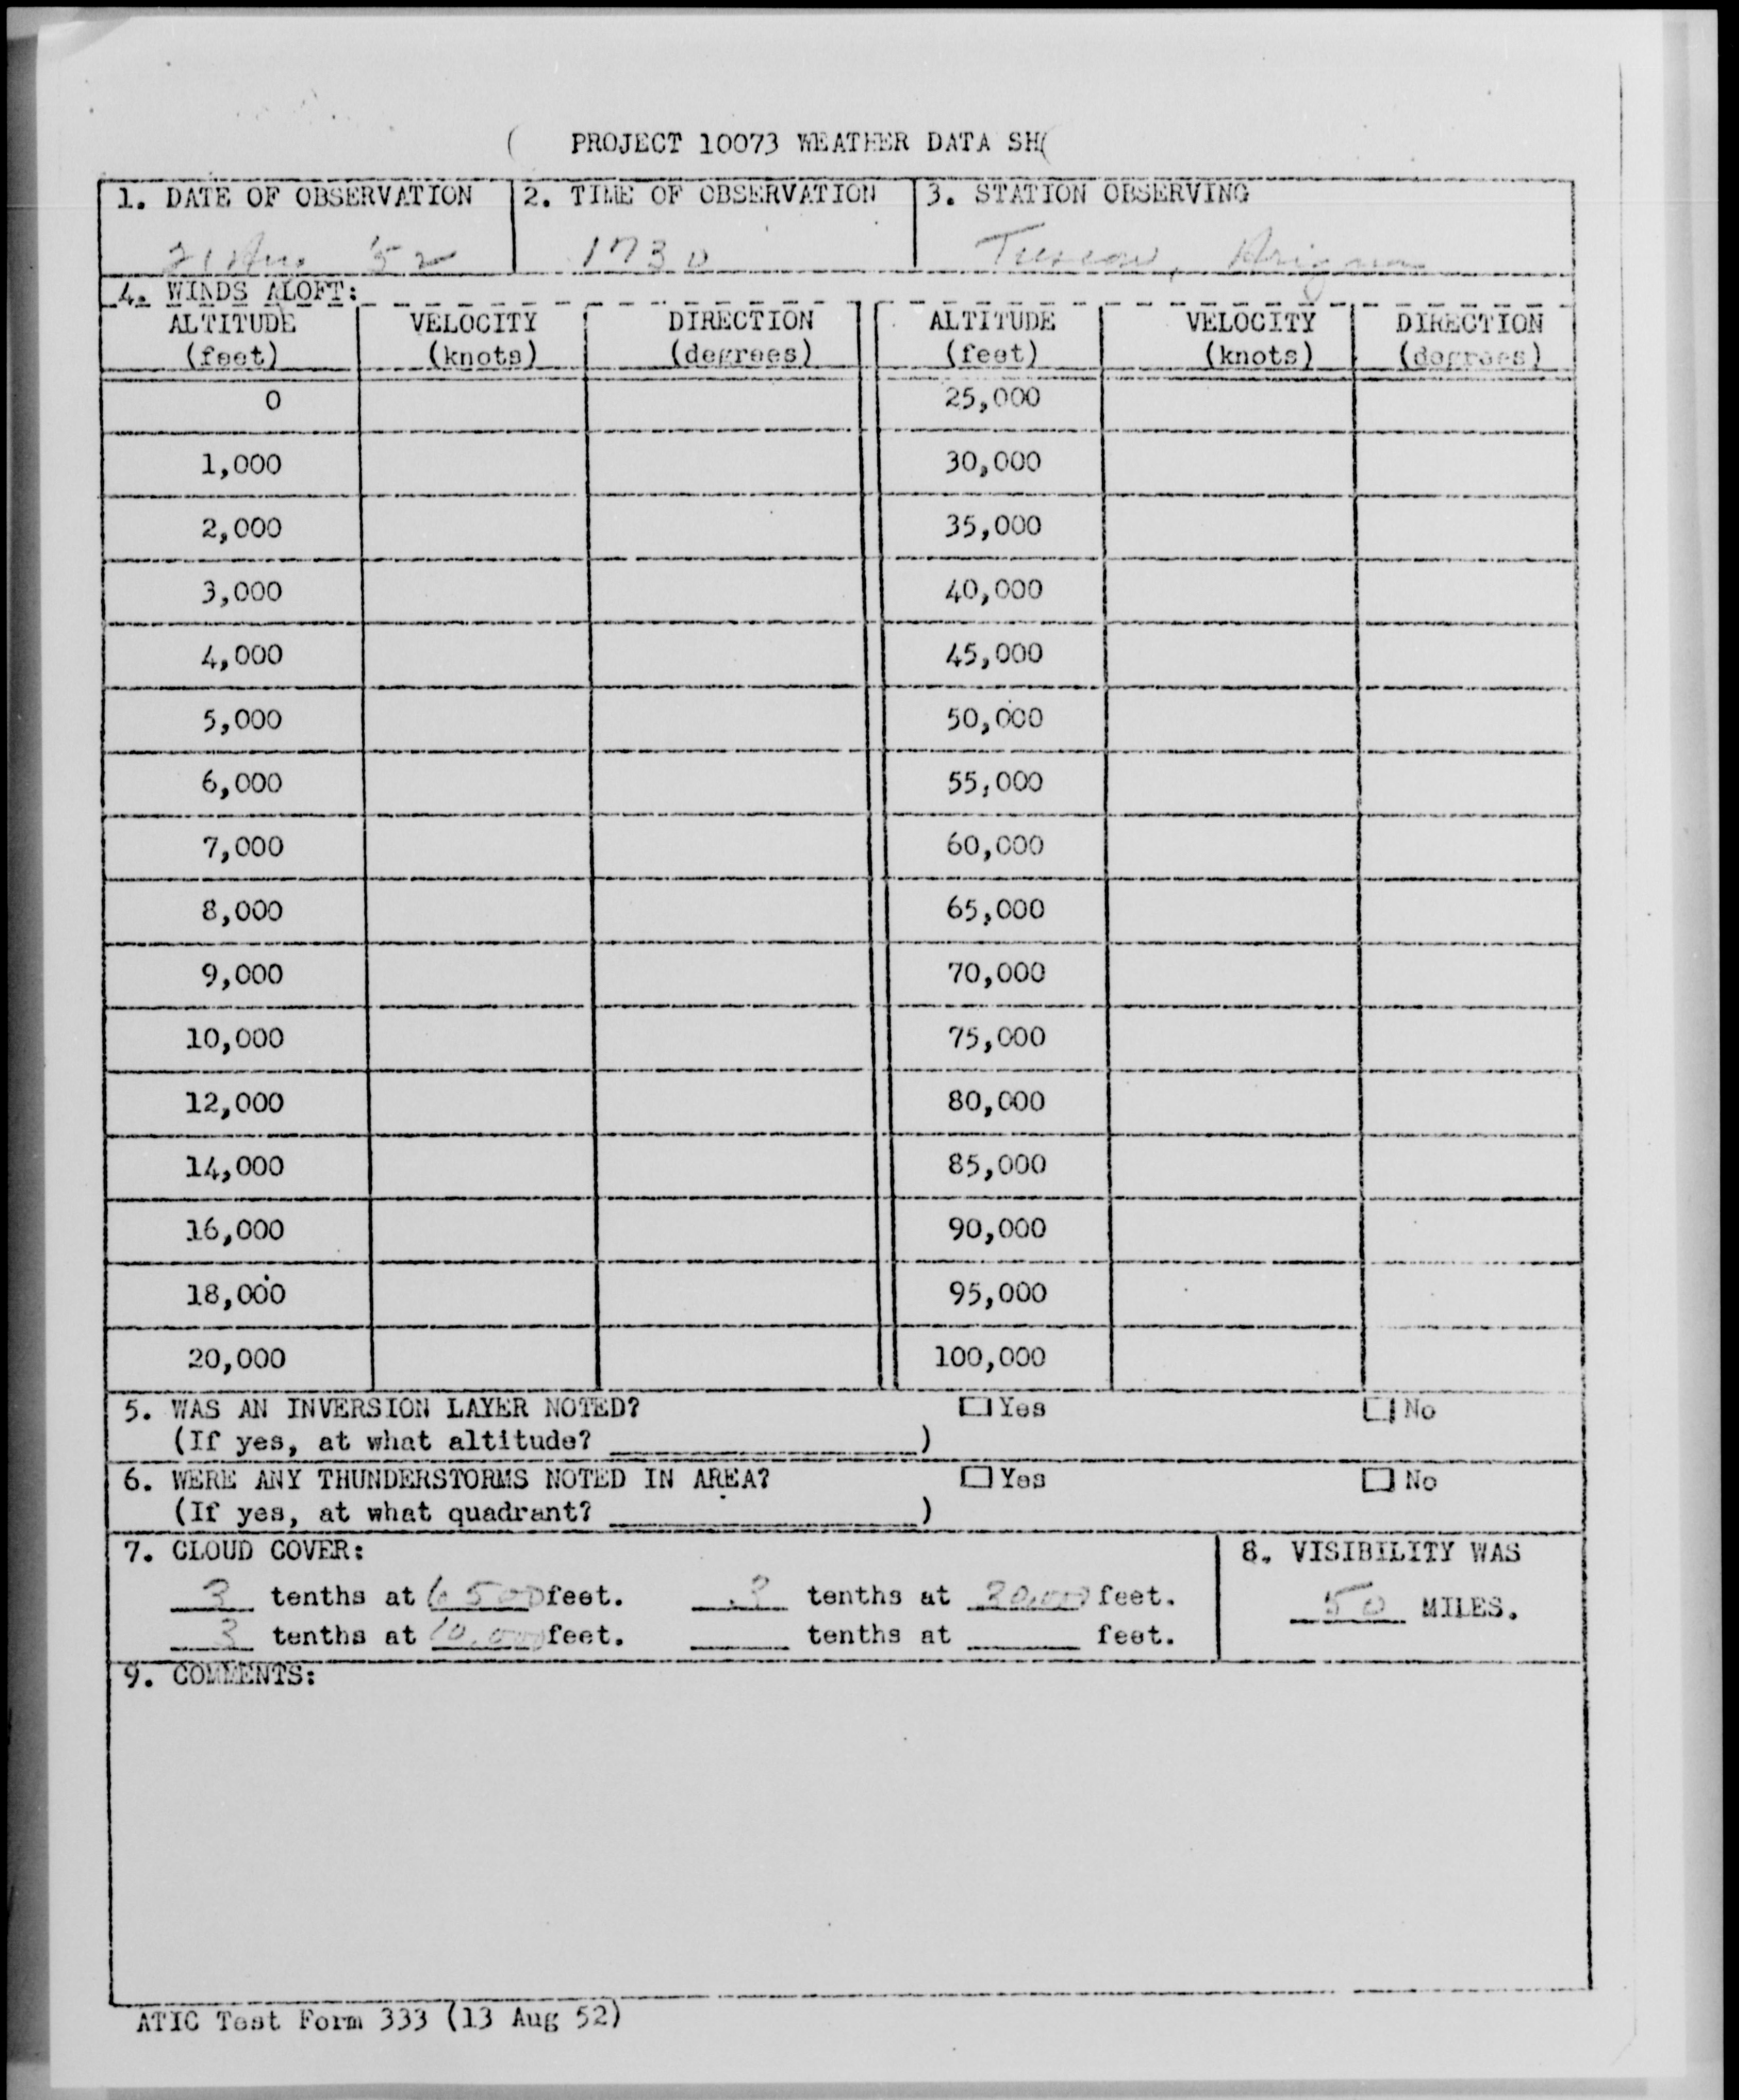 PROJECT 10073 WEATHER DATA SH
1. DATE OF OBSERVATION 2. TIME OF OBSERVATION 3. STATION OBSERVING
21 '52 1730 Tucson, Arizona
4. WINDS ALOFT:
ALTITUDE VELOCITY DIRECTION ALTITUDE VELOCITY DIRECTION
(feet) (knots) (degrees) (feet) (knots) (degrees)
0 25,000
1,000 30,000
2,000 35,000
3,000 40,000
4,000 45,000
5,000 50,000
6,000 55,000
7,000 60,000
8,000 65,000
9,000 70,000
10,000 75,000
12,000 80,000
14,000 85,000
16,000 90,000
18,000 95,000
20,000 100,000
5. WAS AN INVERSION LAYER NOTED? Yes No
(If yes, at what altitude? )
6. WERE ANY THUNDERSTORMS NOTED IN AREA? Yes No
(If yes, at what quadrant? )
7. CLOUD COVER: 8. VISIBILITY WAS
3 tenths at 6500 feet. tenths at feet. 50 MILES.
3 tenths at 10,000 feet. tenths at feet.
9. COMMENTS:
ATIC Test Form 333 (13 Aug 52)